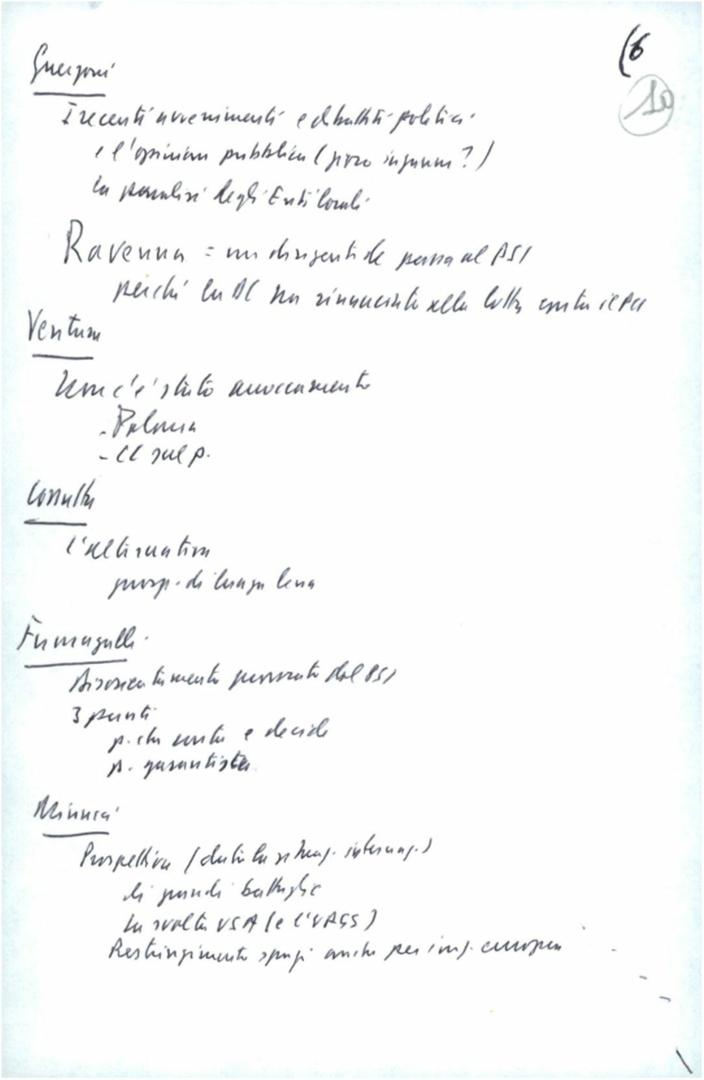 (6
10
Guerzoni
I recenti avvenimenti e dibattiti politici
e l'opinione pubblica (poco ?)
La paralisi degli Enti locali
Ravenna = un dirigente dc passa al PSI
perché la DC ha rinunciato alla lotta contro il PCI
Ventura
Non c'è stato
- Polonia
- CC sul p.
Consulta
L'alternativa
prosp. di lunga lena
Fumagalli
Disorientamento provocato dal PSI
3 punti
p. che conta e decide
p. garantista
Minucci
Prospettiva (data la situaz. internaz.)
di grandi battaglie
La svolta USA (e l'URSS)
Restringimento spazi anche per iniz. europea